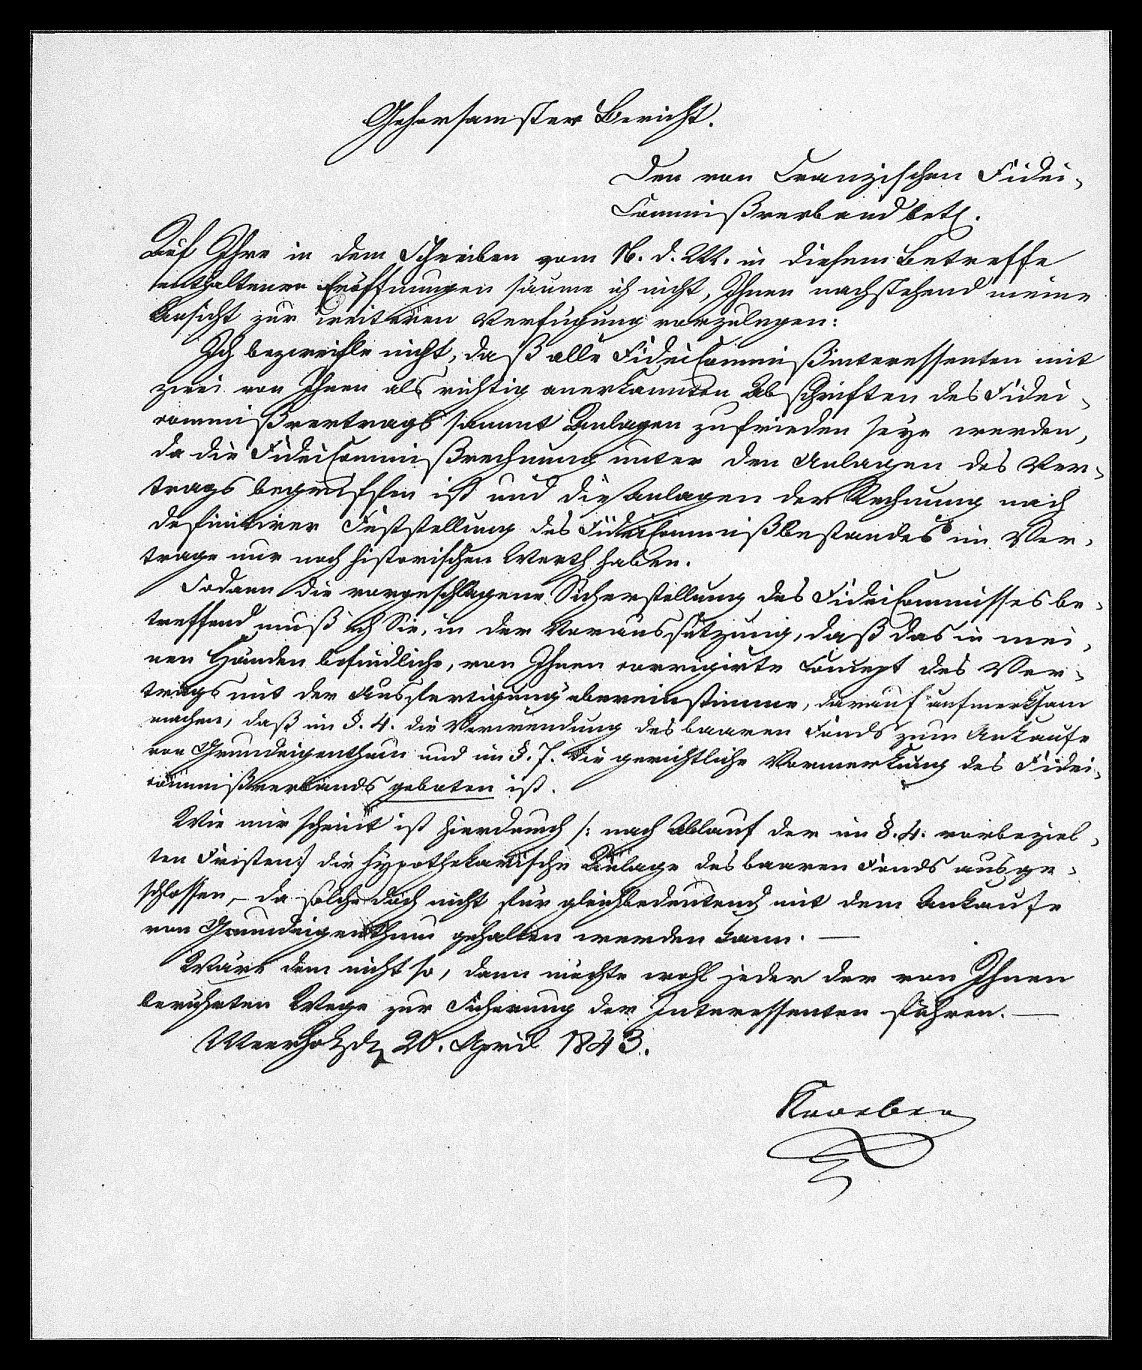 Gehorsamster Bericht.
Den von Cranzischen Fidei-
Commißverband betr.
Auf Ihre in dem Schreiben vom 16. d. M. in diesem Betreffe
enthaltenen Eröffnungen säume ich nicht, Ihnen nachstehend meine
Ansicht zur weiteren Verfügung vorzulegen:
Ich bezweifle nicht, daß alle Fideicommißinteressenten mit
zwei von Ihnen als richtig anerkannten Abschriften des Fidei-
commißvertrags sammt Anlagen zufrieden seyn werden,
da die Fideicommißrechnung unter den Anlagen des Ver-
trags begriffen ist und die Anlagen der Rechnung nach
definitiver Feststellung des Fideicommißbestandes im Ver-
trage nur noch historischen Werth haben.
Sodann die vorgeschlagene Sicherstellung des Fideicommisses be-
treffend muß ich Sie, in der Voraussetzung, daß das in mei-
nen Händen befindliche, von Ihnen corrigirte Concept des Ver-
trags mit der Ausfertigung übereinstimme, darauf aufmerksam
machen, daß im §. 4. die Verwendung des baaren Fonds zum Ankaufe
von Grundeigenthum und im §. 7. die gerichtliche Vormerkung des Fidei-
commißverbands geboten ist.
Wie mir scheint ist hierdurch /: nach Ablauf der im §. 4. vorbeziel-
ten Fristen:/ die hypothekarische Anlage des baaren Fonds ausge-
schlossen, – da solche doch nicht für gleichbedeutend mit dem Ankaufe
von Grundeigenthum gehalten werden kann. —
Wäre dem nicht so, dann möchte wohl jeder der von Ihnen
berührten Wege zur Sicherung der Interessenten führen. —
Meerholz d. 20. April 1843.